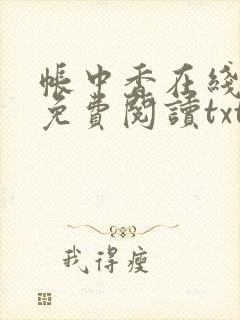 帳中香在綫
免費閱讀txt
我得瘦